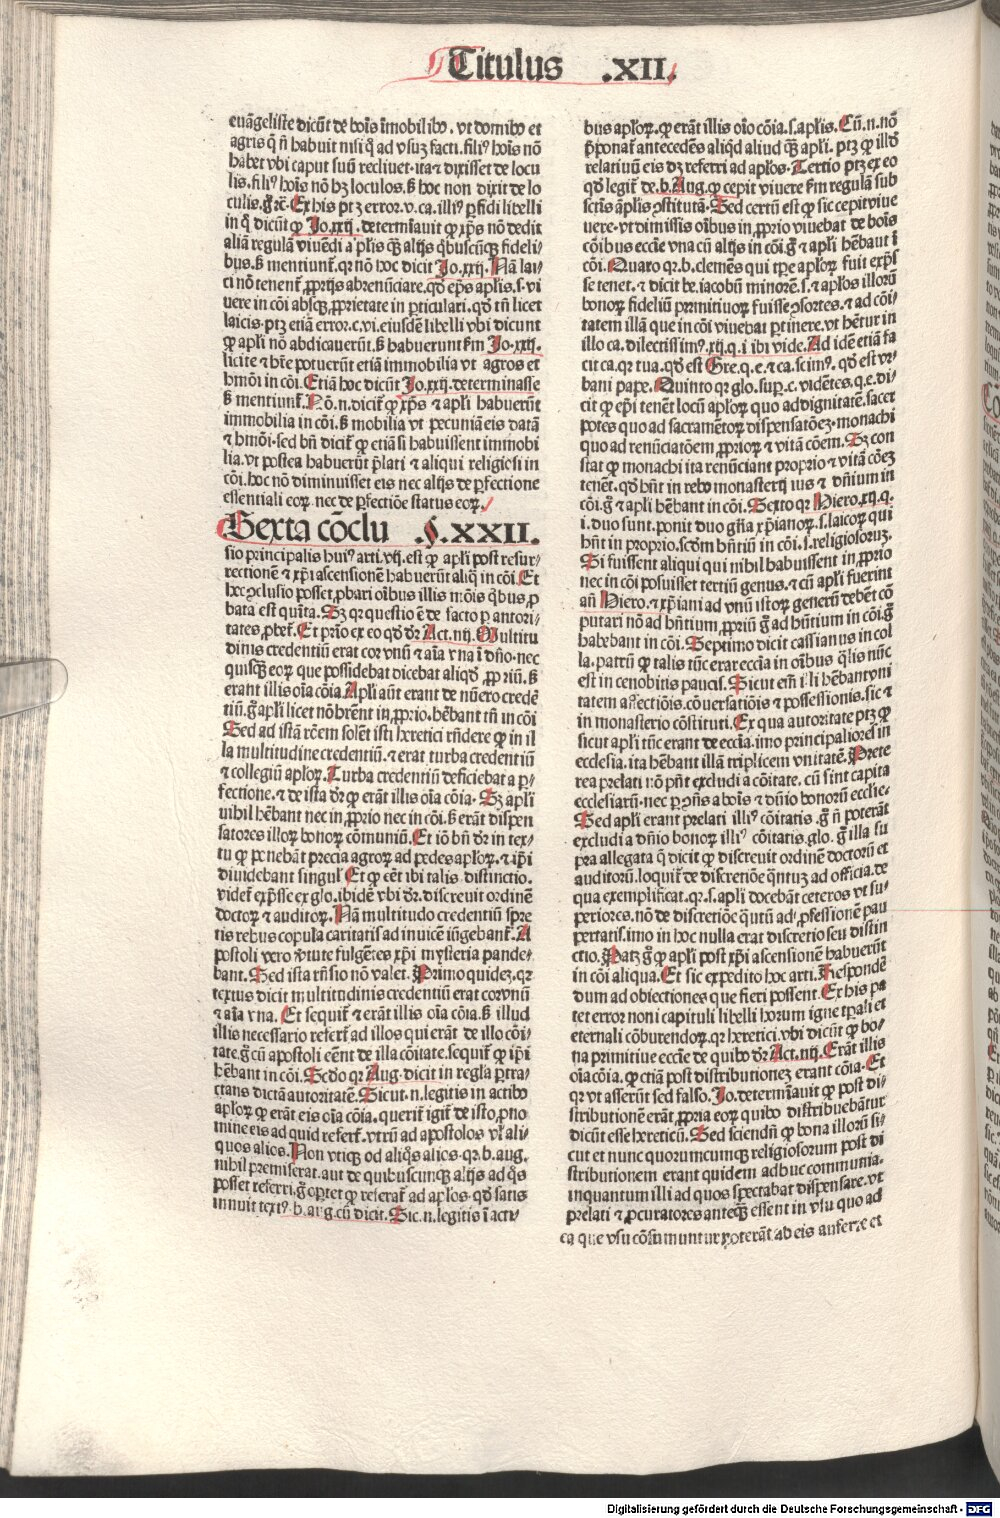 Titulus .XII.
euāgeliste dicūt de boīs īmobilibꝰ. vt domibꝰ et
agris q̄ ñ habuit nisi q̄ ad vsuz facti. filiꝰ hoīs nō
habet vbi caput suū recliuet. ita ⁊ dixisset de locu
lis. filiꝰ hoīs nō hꝫ loculos. ß hoc non dixit de lo
culis. ḡ ⁊c̄. Ex his ptꝫ error. v. ca. illiꝰ ꝑfidi libelli
in q̄ dicūt ꝙ Jo. xxij. determīauit ꝙ xp̄s nō dedit
aliā regulā viuēdi aplis qꝫ̄ alijs q̄buscūqꝫ fideli⸗
bus. ß mentiunt̄. qꝛ nō hoc dicit Jo. xxij. Nā lai⸗
ci nō tenent̄ ꝓprijs abrenūciare. qd̓ ep̄s aplis. s. vi
uere in cōi absqꝫ ꝓprietate in ꝑticulari. qd̓ tn̄ licet
laicis. ptꝫ etiā error. c. vi. eiusdē libelli vbi dicunt
ꝙ apl̓i nō abdicauerūt. ß habuerunt ẜm Jo. xxij.
licite ⁊ bn̄e potuerūt etiā immobilia vt agros et
hmōi in cōi. Etiā hoc dicūt Jo. xxij. determinasse
ß mentiunt̄. Nō. n. dicit̄ ꝙ xp̄s ⁊ apl̓i habuerūt
immobilia in cōi. ß mobilia vt pecuniā eis datā
⁊ hmōi. sed bn̄ dicit̄ ꝙ etiā si habuissent immobi
lia. vt postea habuerūt p̄lati ⁊ aliqui religiosi in
cōi. hoc nō diminuisset eis nec alijs de ꝑfectione
essentiali eoꝝ. nec de ꝑfectiōe status eoꝝ.
Sexta cōclu §. XXII.
sio principalis huiꝰ arti. vij. est ꝙ apl̓i post resur⸗
rectionē ⁊ xp̄i ascensionē habuerūt aliq̄ in cōi. Et
hec ↄclusio posset ꝓbari oībus illis mōis q̄bus ꝓ
bata est quīta. Sꝫ qꝛ questio ē de facto ꝑ autori⸗
tates ꝓbet̄. Et prīo ex eo qd̓ dr̄ Act. iiij. Multitu
dinis credentiū erat cor vnū ⁊ aīa vna ī dn̄o. nec
quisqꝫ̄ eoꝝ que possidebat dicebat aliqd̓ ꝓpriū. ß
erant illis oīa cōia. Apl̓i aūt erant de nūero credē
tiū. ḡ apl̓i licet nō hr̄ent in ꝓprio. hēbant tn̄ in cōi
Sed ad istā rōem solent isti heretici rn̄dere ꝙ in il
la multitudine credentiū. ⁊ erat turba credentiū
⁊ collegiū apl̓oꝝ. Turba credentiū deficiebat a ꝑ⸗
fectione. ⁊ de ista dr̄ ꝙ erāt illis oīa cōia. Sꝫ apl̓i
nihil hēbant nec in ꝓprio nec in cōi. ß erāt dispen
satores illoꝝ bonoꝝ cōmuniū. Et iō bn̄ dr̄ in tex⸗
tu ꝙ ponebāt precia agroꝝ ad pedes apl̓oꝝ. ⁊ ip̄i
diuidebant singul̓. Et ꝙ cēt ibi talis distinctio.
videt̄ exp̄sse ex glo. ibidē vbi dr̄. discreuit ordinē
doctoꝝ ⁊ auditoꝝ. Nā multitudo credentiū spre
tis rebus copula caritatis ad inuicē iūgebant̄. A
postoli vero v̓tute fulgētes xp̄i mysteria pande⸗
bant. Sed ista rn̄sio nō valet. Primo quidez. qꝛ
textus dicit multitudinis credentiū erat cor vnū
⁊ aīa vna. Et sequit̄ ⁊ erāt illis oīa cōia. ß illud
illis necessario refert̄ ad illos qui erāt de illo cōi⸗
tate. ḡ cū apostoli cēnt de illa cōitate. sequit̄ ꝙ ip̄i
hēbant in cōi. Scd̓o qꝛ Aug. dicit in regla ꝑtra⸗
ctans dictā autoritatē. Sicut. n. legitis in actibꝰ
apl̓oꝝ ꝙ erāt eis oīa cōia. querit̄ igit̄ de isto ꝓno
mine eis ad quid refert̄. vtrū ad apostolos vl̓ ali⸗
quos alios. Non vtiqꝫ od aliq̄s alios. qꝛ. b. aug.
nihil premiserat. aut de quibuscunqꝫ alijs ad q̄s
posset referri. ḡ oꝑtet ꝙ referat̄ ad apl̓os. qd̓ satis
innuit textꝰ. b. aug. cū dicit. Sic. n. legitis ī acti⸗
bus apl̓oꝝ. ꝙ erāt illis oīo cōia. s. apl̓is. Cū. n. nō
p̄ponat̄ antecedēs aliqd̓ aliud qꝫ̄ apl̓i. ptꝫ ꝙ illd̓
relatiuū eis dꝫ referri ad apl̓os. Tertio ptꝫ ex eo
qd̓ legit̄ de. b. Aug. ꝙ cepit viuere ẜm regulā sub
scr̄is āplis ↄstitutā. Sed certū est ꝙ sic cepit viue
uere. vt dimissis oībus in ꝓprio viuebat de bonis
cōibus ecclīe vna cū alijs in cōi. ḡ ⁊ apl̓i hēbāut ī
cōi. Quarto qꝛ. b. clemēs qui tꝑe apl̓oꝝ fuit exp̄s
se tenet. ⁊ dicit be. iacobū minorē. s. ⁊ apl̓os illorū
bonoꝝ fideliū primitiuoꝝ fuisse ↄsortes. ⁊ ad cōi⸗
tatem illā que in cōi viuebat ꝑtinere. vt hētur in
illo ca. dilectissimꝰ. xij. q. i ibi vide. Ad idē etiā fa
cit ca. qꝛ tua. qd̓ est Gre. q. e. ⁊ ca. scimꝰ. qd̓ est vr⸗
bani pape. Quinto qꝛ glo. suꝑ. c. vidētes. q. e. di⸗
cit ꝙ ep̄i tenēt locū apl̓oꝝ quo ad dignitatē. sacer
potes quo ad sacramētoꝝ dispensatōez. monachi
quo ad renūciatōem ꝓprioꝝ ⁊ vitā cōem. Sꝫ con
stat ꝙ monachi ita renūciant proprio ⁊ vitā cōez
tenēt. qd̓ hn̄t in rebꝰ monasterij ius ⁊ dn̄ium in
cōi. ḡ ⁊ apl̓i hēbant in cōi. Sexto qꝛ Hiero. xij. q.
i. duo sunt. ponit duo gn̄a xp̄ianoꝝ. s. laicoꝝ qui
hn̄t in proprio. scd̓m hn̄tiū in cōi. s. religiosoruz.
Si fuissent aliqui qui nihil habuissent in ꝓprio
nec in cōi posuisset tertiū genus. ⁊ cū apl̓i fuerint
an̄ Hiero. ⁊ xp̄iani ad vnū istoꝝ generū debēt cō
putari nō ad hn̄tium. ꝓpriū ḡ ad hn̄tium in cōi. ḡ
habebant in cōi. Septimo dicit cassianus in col
la. patrū ꝙ talis tūc erat ecclīa in oībus q̄lis nūc
est in cenobitis paucis. Sicut em̄ illi hēbant vni
tatem affectiōis. cōuersatiōis ⁊ possessionis. sic ⁊
in monasterio cōstituti. Ex qua autoritate ptꝫ ꝙ
sicut apl̓i tūc erant de ecclīa. imo principaliores in
ecclesia. ita hēbant illā triplicem vnitatē. Prete
rea prelati nō pn̄t excludi a cōitate. cū sint capita
ecclesiarū. nec ꝑ ↄn̄s a boīs ⁊ dn̄io bonorū ecclīe.
Sed apl̓i erant prelati illiꝰ cōitatis. ḡ ñ poterāt
excludi a dn̄io bonoꝝ illiꝰ cōitatis. glo. ḡ illa su
pra allegata q̄ dicit ꝙ discreuit ordinē doctorū et
auditorū. loquit̄ de discretiōe q̄ntuz ad officia. de
qua exemplificat. qꝛ. s. apl̓i docēbāt ceteros vt su⸗
periores. nō de discretiōe q̄utū ad ꝓfessionē pau
pertatis. imo in hoc nulla erat discretio seu distin
ctio. Patꝫ ḡ ꝙ apl̓i post xp̄i ascensionē habuerūt
in cōi aliqua. Et sic expedito hoc arti. Respondē
dum ad obiectiones que fieri possent. Ex his pa
tet error noni capituli libelli horum igne tꝑali et
eternali cōburendoꝝ. qꝛ heretici. vbi dicūt ꝙ bo⸗
na primitiue ecclīe de quibꝰ dr̄ Act. iiij. Erāt illis
oīa cōia. ꝙ etiā post distributionez erant cōia. Et
qꝛ vt asserūt sed falso. Jo. determīauit ꝙ post di⸗
stributionē erāt ꝓpria eoꝝ quibꝰ distribuebātur
dicūt esse hereticū. Sed sciendū ꝙ bona illorū si⸗
cut et nunc quorumcumqꝫ religiosorum post di
stributionem erant quidem adhuc communia.
inquantum illi ad quos spectabat dispensare. vt
prelati ⁊ ꝓcuratores anteqꝫ̄ essent in vsu quo ad
ca que vsu cōsumuntur poterāt ab eis auferre et
Digitalisierung gefördert durch die Deutsche Forschungsgemeinschaft - DFG